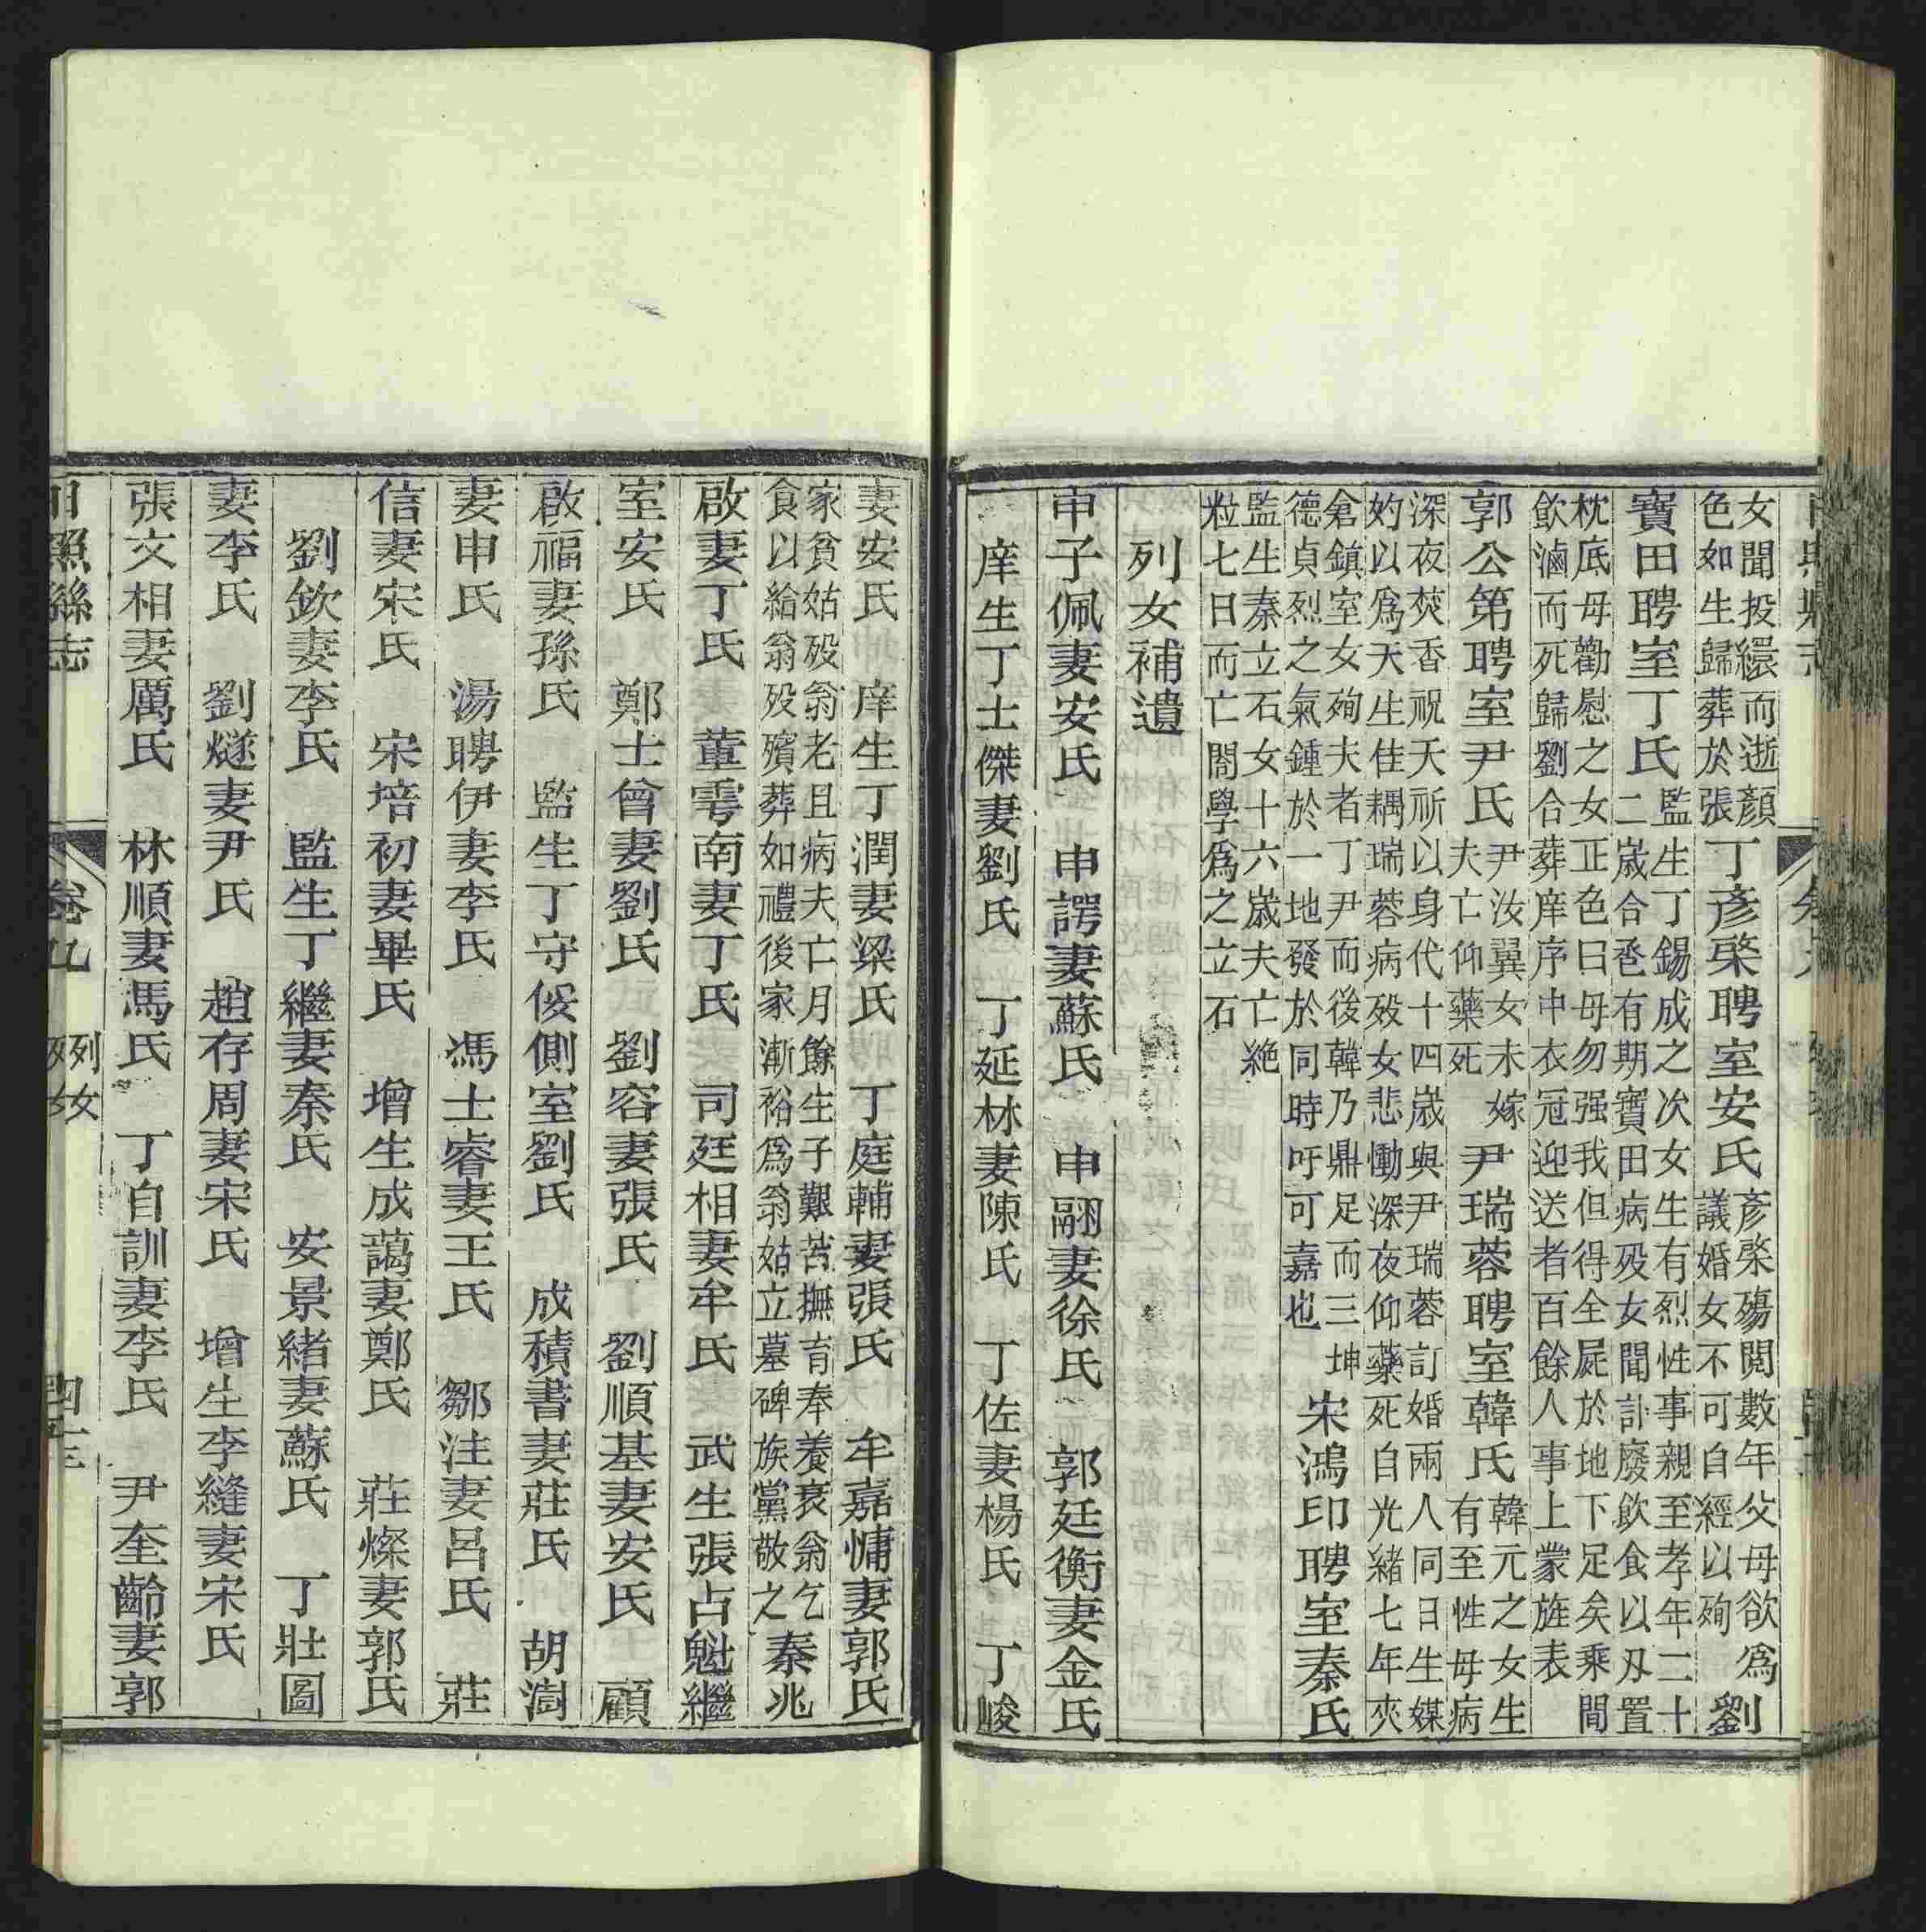 女聞投繯而逝顏
色如生歸葬於張
丁彥棨聘室安氏
彥棨殤閱數年父母欲爲
議婚女不可自經以殉
劉
寶田聘室丁氏
監生丁錫成之次女生有烈性事親至孝年二十
二歲合卺有期寶田病歿女聞訃廢飲食以刃置
枕底母勸慰之女正色曰母勿强我但得全屍於地下足矣乘間
飲滷而死歸劉合葬庠序中衣冠迎送者百餘人事上蒙旌表
郭公第聘室尹氏
尹汝翼女未嫁
夫亡仰藥死
尹瑞蓉聘室韓氏
韓元之女生
有至性母病
深夜焚香祝天祈以身代十四歲與尹瑞蓉訂婚兩人同日生媒
妁以爲天生佳耦瑞蓉病歿女悲慟深夜仰藥死自光緒七年夾
倉鎮室女殉夫者丁尹而後韓乃鼎足而三坤
德貞烈之氣鍾於一地發於同時吁可嘉也
宋鴻印聘室秦氏
監生秦立石女十六歲夫亡絶
粒七日而亡閤學爲之立石
列女補遺
申子佩妻安氏 申諤妻蘇氏 申翮妻徐氏 郭廷衡妻金氏
庠生丁士傑妻劉氏 丁延林妻陳氏 丁佐妻楊氏 丁峻
妻安氏 庠生丁潤妻梁氏 丁庭輔妻張氏 牟嘉慵妻郭氏
家貧姑歿翁老且病夫亡月餘生子艱苦撫育奉養衰翁乞
食以給翁歿殯葬如禮後家漸裕爲翁姑立墓碑族黨敬之
秦兆
啟妻丁氏 董雩南妻丁氏 司廷相妻牟氏 武生張占魁繼
室安氏 鄭士曾妻劉氏 劉容妻張氏 劉順基妻安氏 顧
啟福妻孫氏 監生丁守俊側室劉氏 成積書妻莊氏 胡澍
妻申氏 湯聘伊妻李氏 馮士睿妻王氏 鄒注妻呂氏 莊
信妻宋氏 宋培初妻畢氏 增生成藹妻鄭氏 莊燦妻郭氏
劉欽妻李氏 監生丁繼妻秦氏 安景緒妻蘇氏 丁壯圖
妻李氏 劉燧妻尹氏 趙存周妻宋氏 增生李縫妻宋氏
張文相妻厲氏 林順妻馮氏 丁自訓妻李氏 尹奎齡妻郭
日照縣志 卷九 列女